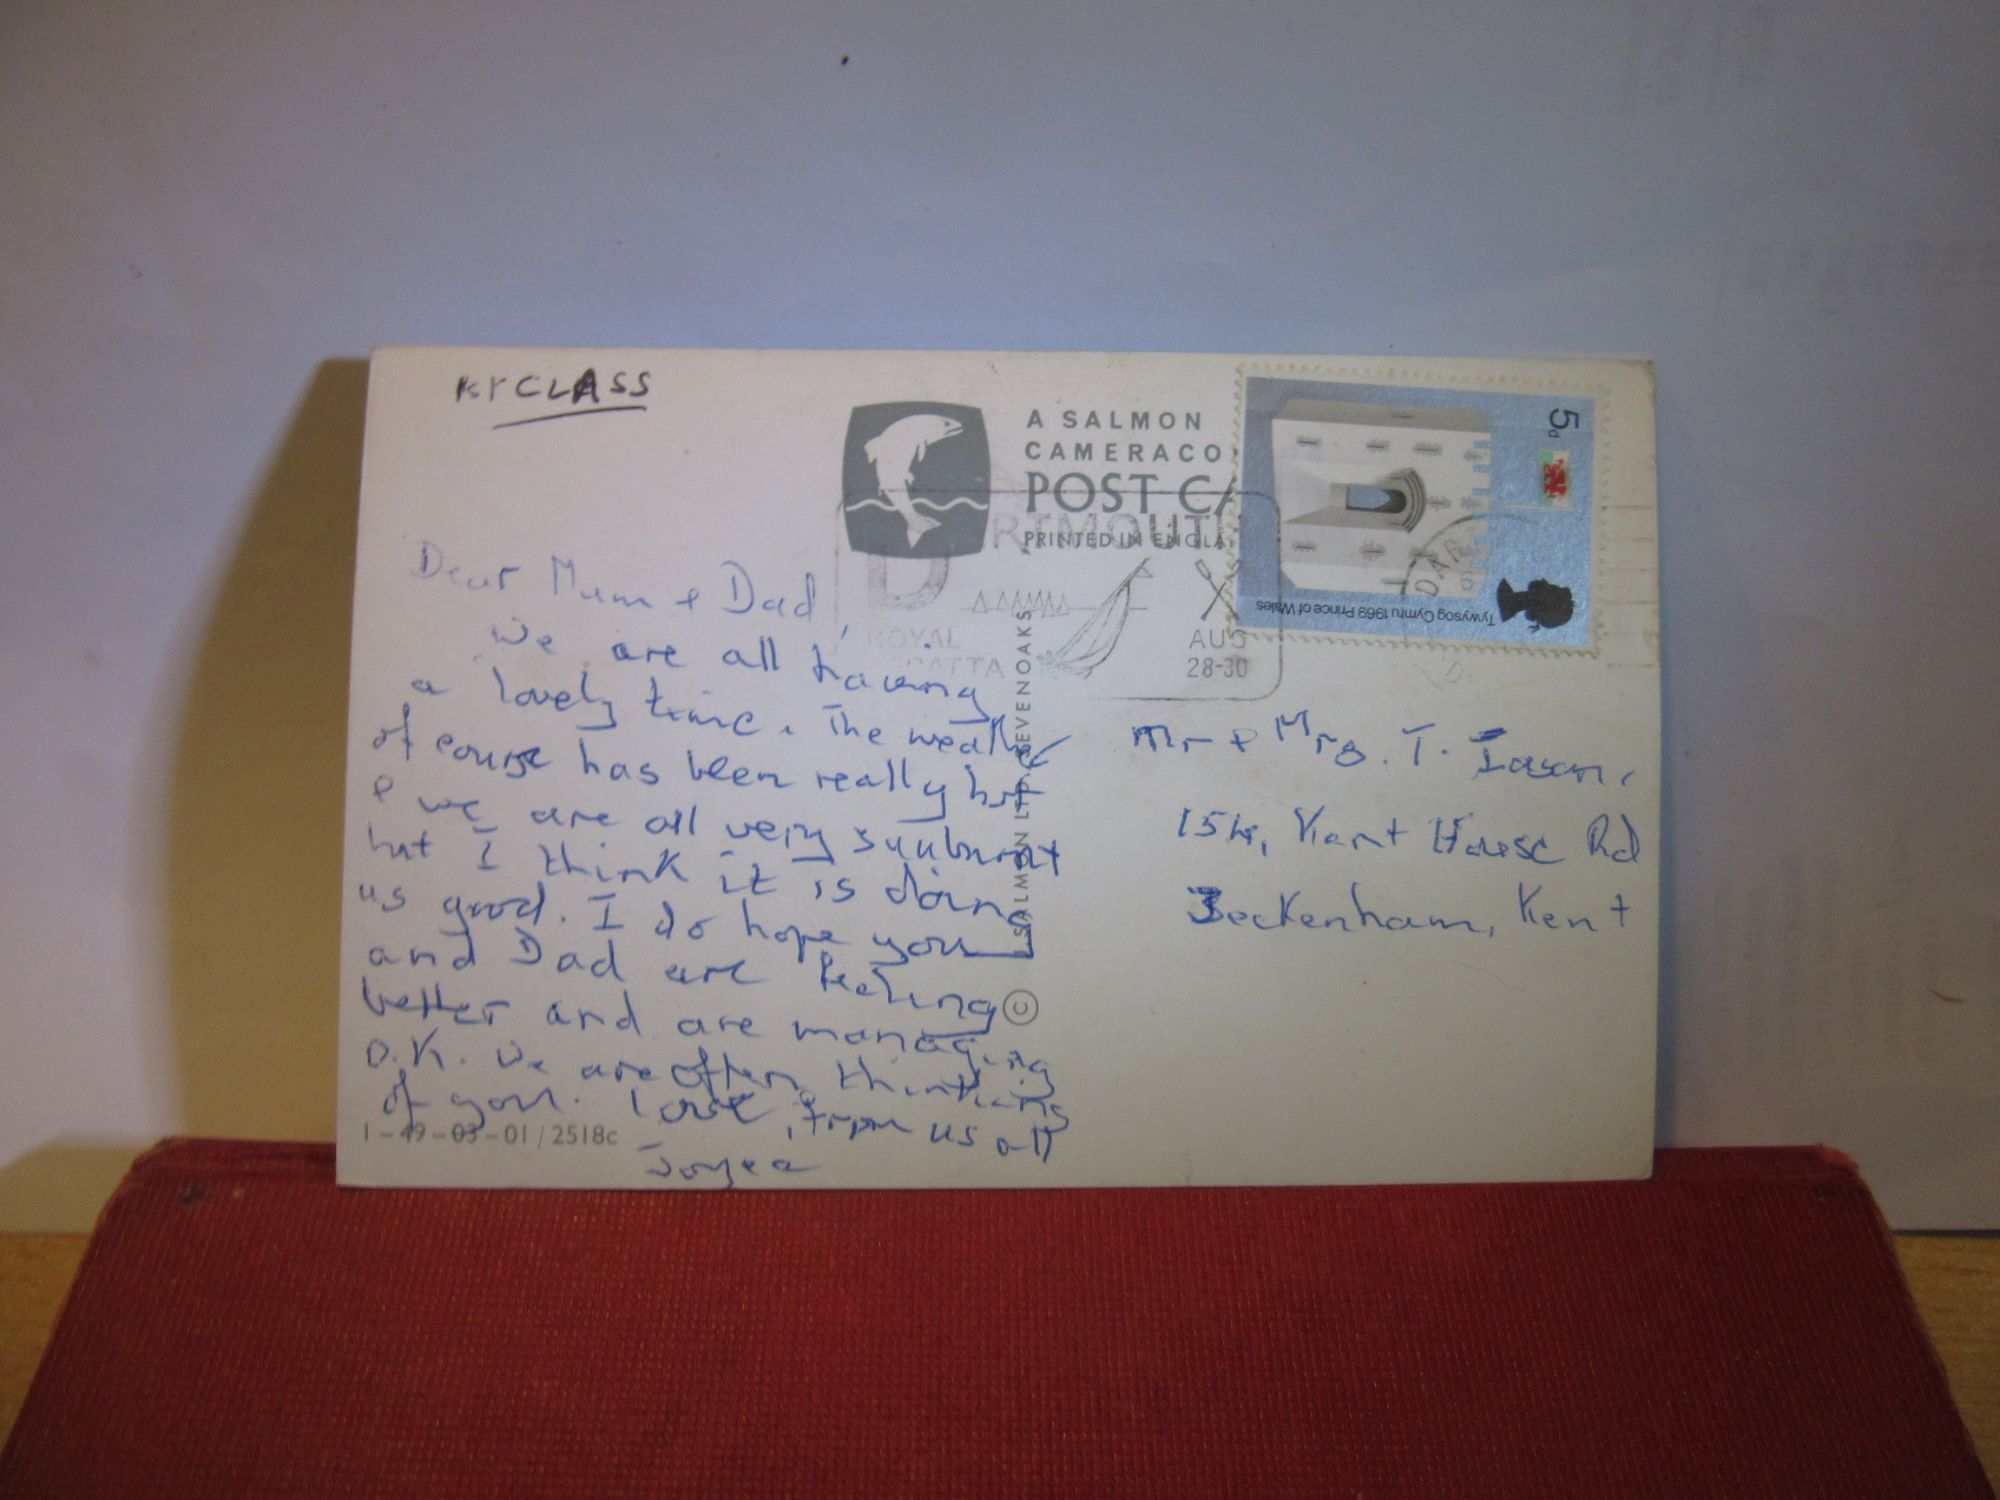 1st CLASS
A SALMON
CAMERACO
POST CA
PRINTED IN ENGLA
5d
Tywysog Cymru 1969 Prince of Wales
DAR
RTMOUTH
ROYAL
REGATTA
AUG
28-30
J. SALMON LTD. SEVENOAKS ©
Dear Mum & Dad,
We are all having
a lovely time. The weather
of course has been really hot
& we are all very sunburnt
but I think it is doing
us good. I do hope you
and Dad are feeling
better and are managing
O.K. We are often thinking
of you. Love, from us all
Joyce
1-49-03-01/2518c
Mr & Mrs. T.
154, Kent House Rd
Beckenham, Kent